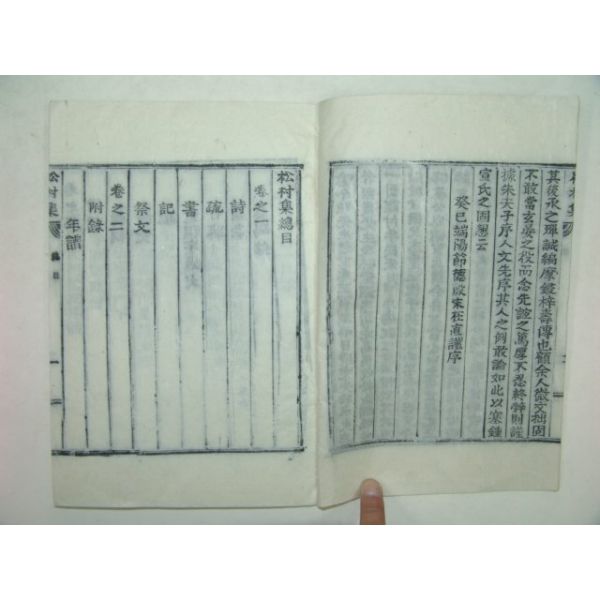 其後承之殫誠編摩鋟梓壽傳也顧余人微文拙固
不敢當玄晏之役而念先誼之篤厚不忍終辭則謹
據朱夫子序人文先序其人之例敢論如此以塞鍾
宣氏之固懇云
癸巳端陽節德殷宋在直謹序
松村集總目
卷之一
詩
疏
書
記
祭文
卷之二
附錄
年譜
松村集